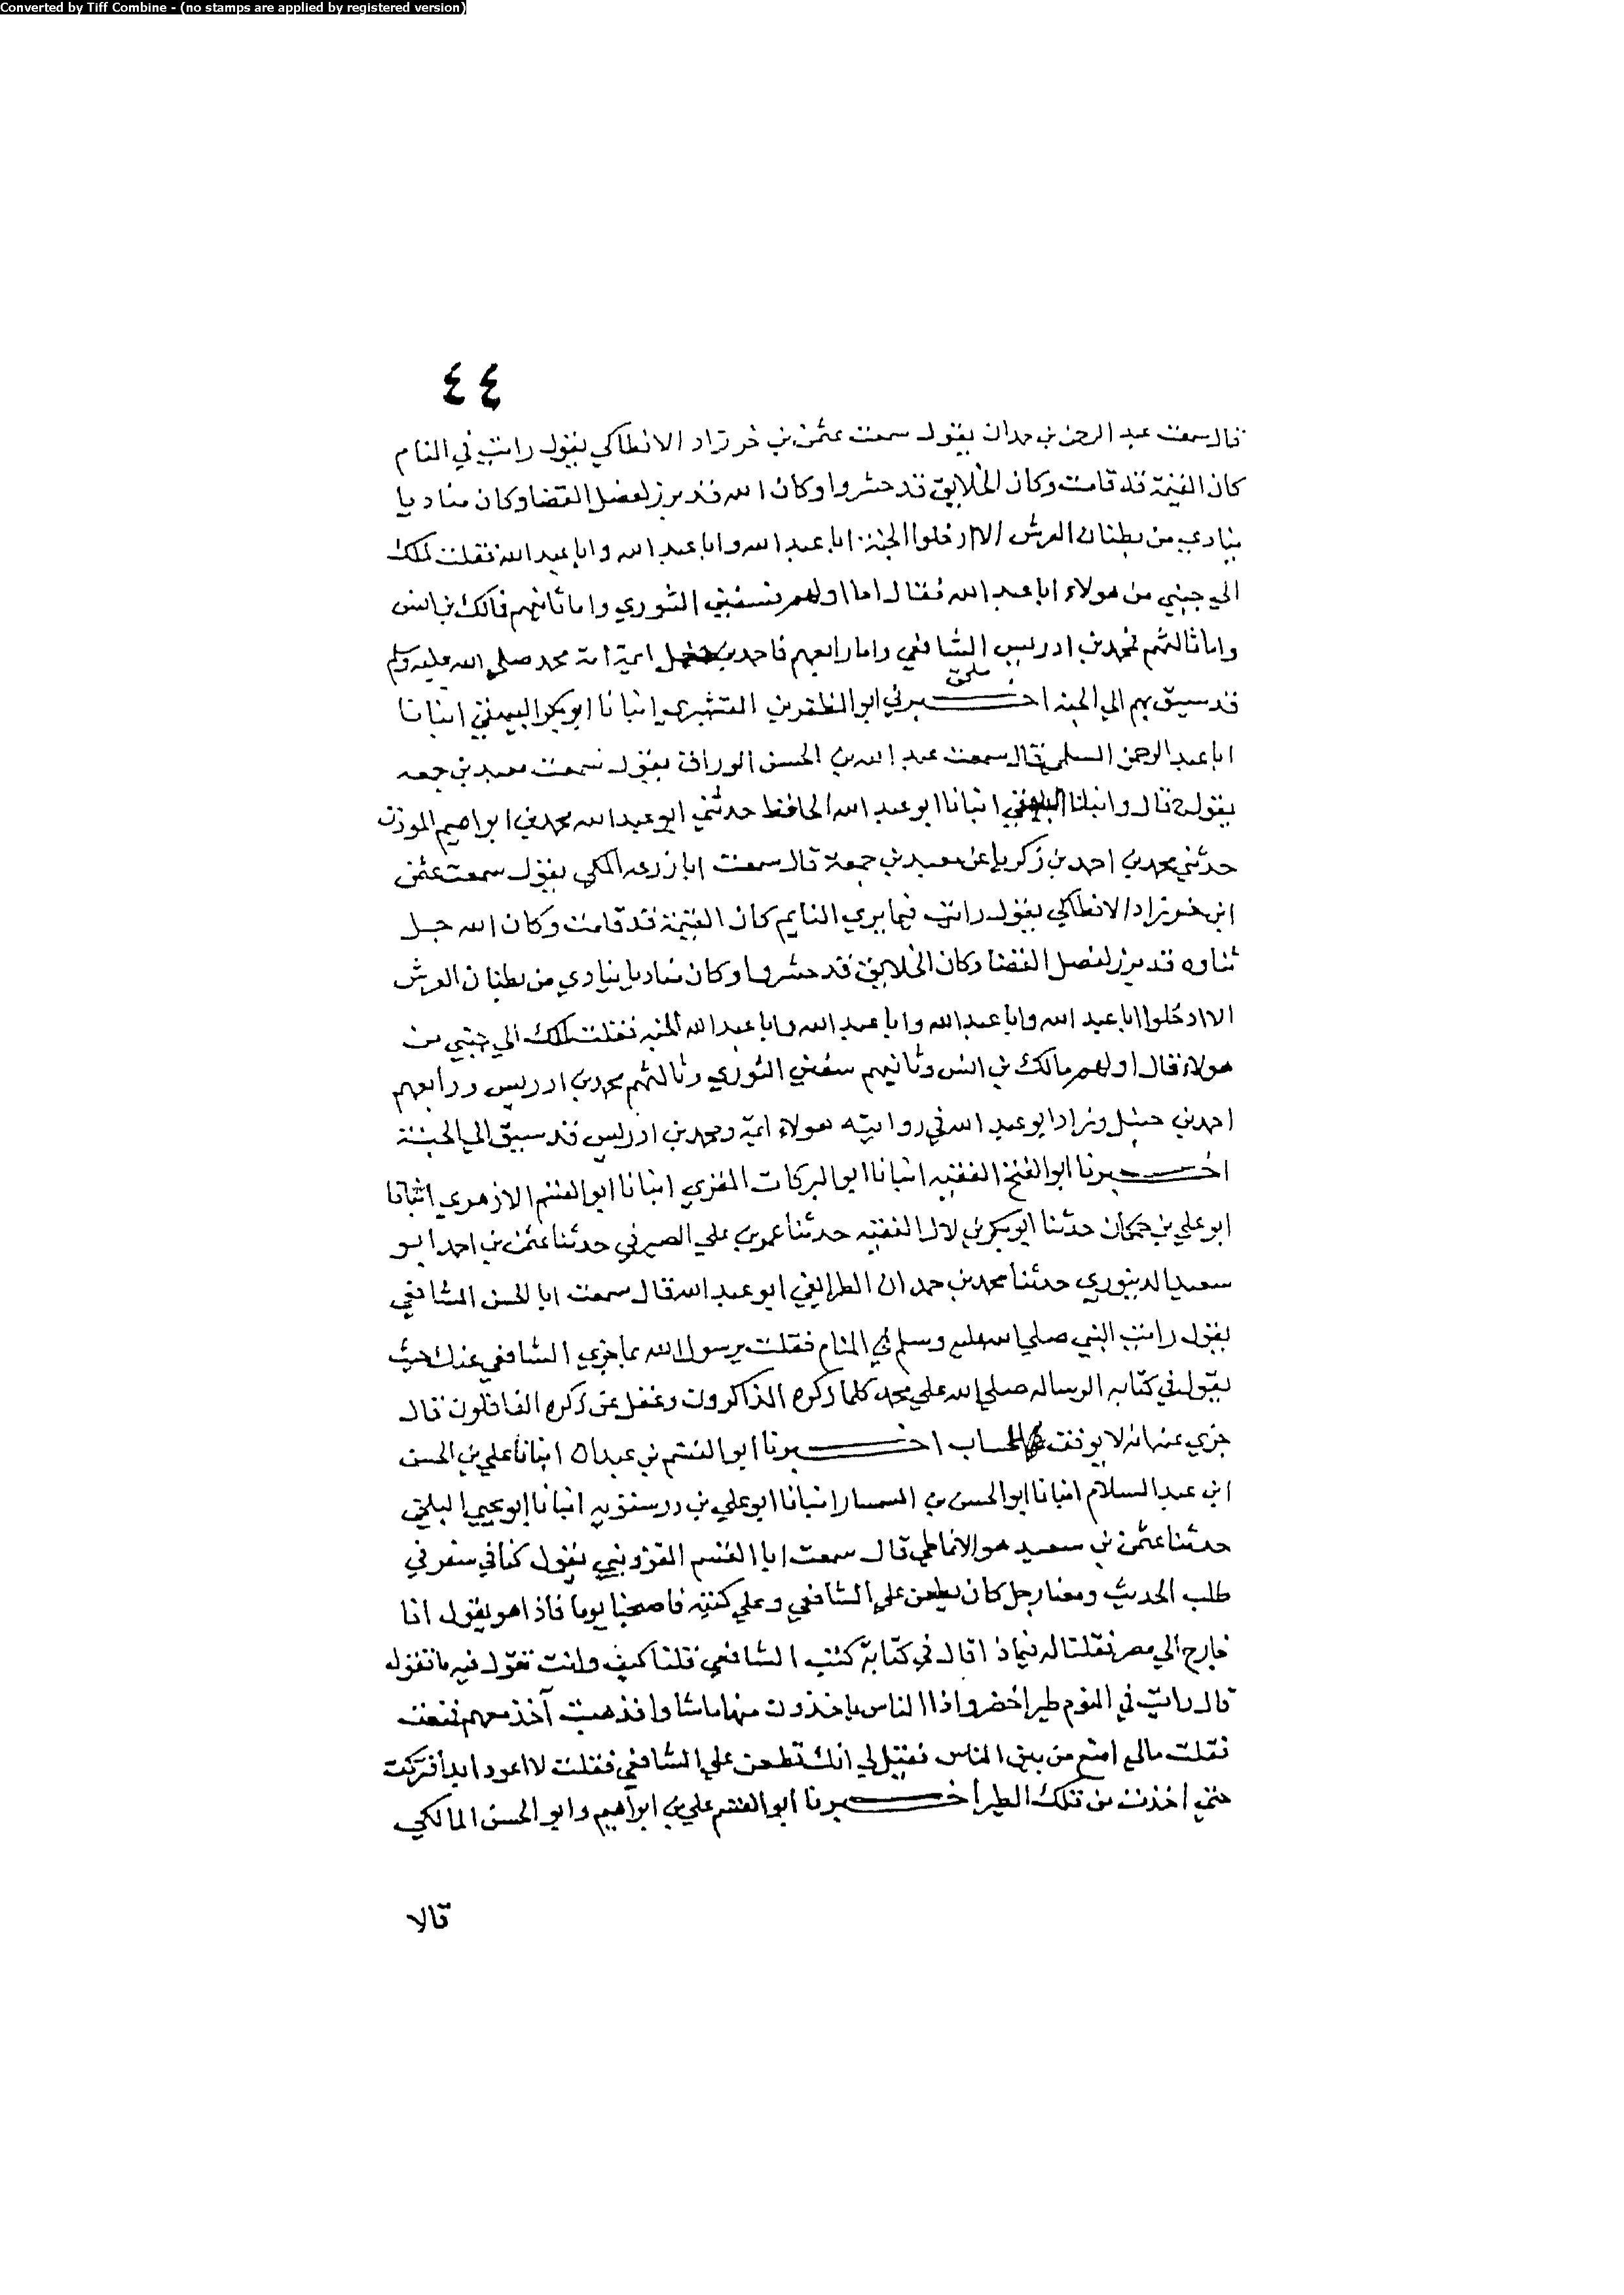 Converted by Tiff Combine - (no stamps are applied by registered version)
٤٤
قال سمعت عبد الرحمن بن حمدان يقول سمعت عثمن بن خرزاد الانطاكي يقول رايت في المنام
كان القيمة قد قامت وكان الخلايق قد حشروا وكان الله قد برز لفصل القضا وكان مناديا
ينادي من بطنان العرش الا ادخلوا الجنة ابا عبد الله وابا عبد الله وابا عبد الله وابا عبد الله فقلت لملك
الي جنبي من هولاء ابا عبد الله فقال اما اولهم فسفين الثوري واما ثانيهم فمالك بن انس
واما ثالثهم فمحمد بن ادريس الشافعي واما رابعهم فاحمد بن حنبل ايمة امة محمد صلى الله عليه وسلم
قد سيق بهم الي الجنة اخبرني ابو المظفر بن القشيري انبانا ابو بكر البيهقي انبانا
ابا عبد الرحمن السلمي قال سمعت عبد الله بن الحسن الوراق يقول سمعت معبد بن جمعه
يقول ح قال وانبانا البيهقي انبانا ابو عبد الله الحافظ حدثني ابو عبد الله محمد بن ابراهيم الموذن
حدثني محمد بن احمد بن زكريا عن معبد بن جمعة قال سمعت ابا زرعه المكي يقول سمعت عثمن
ابن خرزاد الانطاكي يقول رايت فيما يري النايم كان القيمة قد قامت وكان الله جل
ثناوه قد برز لفصل القضا وكان الخلايق قد حشروا وكان مناديا ينادي من بطنان العرش
الا ادخلوا ابا عبد الله وابا عبد الله وابا عبد الله وابا عبد الله الجنه فقلت لملك الي جنبي من
هولاء قال اولهم مالك بن انس وثانيهم سفين الثوري وثالثهم محمد بن ادريس ورابعهم
احمد بن حنبل وزاد ابو عبد الله في روايته هولاء ايمة ومحمد بن ادريس قد سيق الي الجنة
اخبرنا ابو الفتح الفقيه انبانا ابو البركات المقري انبانا ابو القسم الازهري انبانا
ابو علي بن حمكان حدثنا ابو بكر بن لال الفقيه حدثنا عمر بن علي الصيرفي حدثنا عثمن بن احمد ابو
سعيد الدينوري حدثنا محمد بن حمدان الطرايفي ابو عبد الله قال سمعت ابا الحسن الشافعي
يقول رايت النبي صلي الله عليه وسلم في المنام فقلت يرسول الله بما جزي الشافعي عنك حيث
يقول في كتابه الرساله صلي الله علي محمد كلما ذكره الذاكرون وغفل عن ذكره الغافلون قال
جزي عني انه لا يوقف للحساب اخبرنا ابو القسم بن عبدان انبانا علي بن الحسن
ابن عبد السلام انبانا ابو الحسن بن السمسار انبانا ابو علي بن درستويه انبانا ابو يحيي البلخي
حدثنا عثمن بن سعيد هو الانماطي قال سمعت ابا القسم القزويني يقول كنا في سفر في
طلب الحديث ومعنا رجل كان يطعن علي الشافعي وعلي كتبه فاصبحنا يوما فاذا هو يقول انا
خارج الي مصر فقلنا له فيماذا قال في كتابة كتب الشافعي قلنا كيف وانت تقول فيه ما تقوله
قال رايت في النوم طيرا خضرا واذا الناس ياخذون منها ما شاوا فذهبت آخذ معهم فمنعت
فقلت مالي امنع من بين الناس فقيل لي انك تطعن علي الشافعي فقلت لا اعود ابدا فتركت
حتي اخذت من تلك الطير اخبرنا ابو القسم علي بن ابراهيم وابو الحسن المالكي
قالا